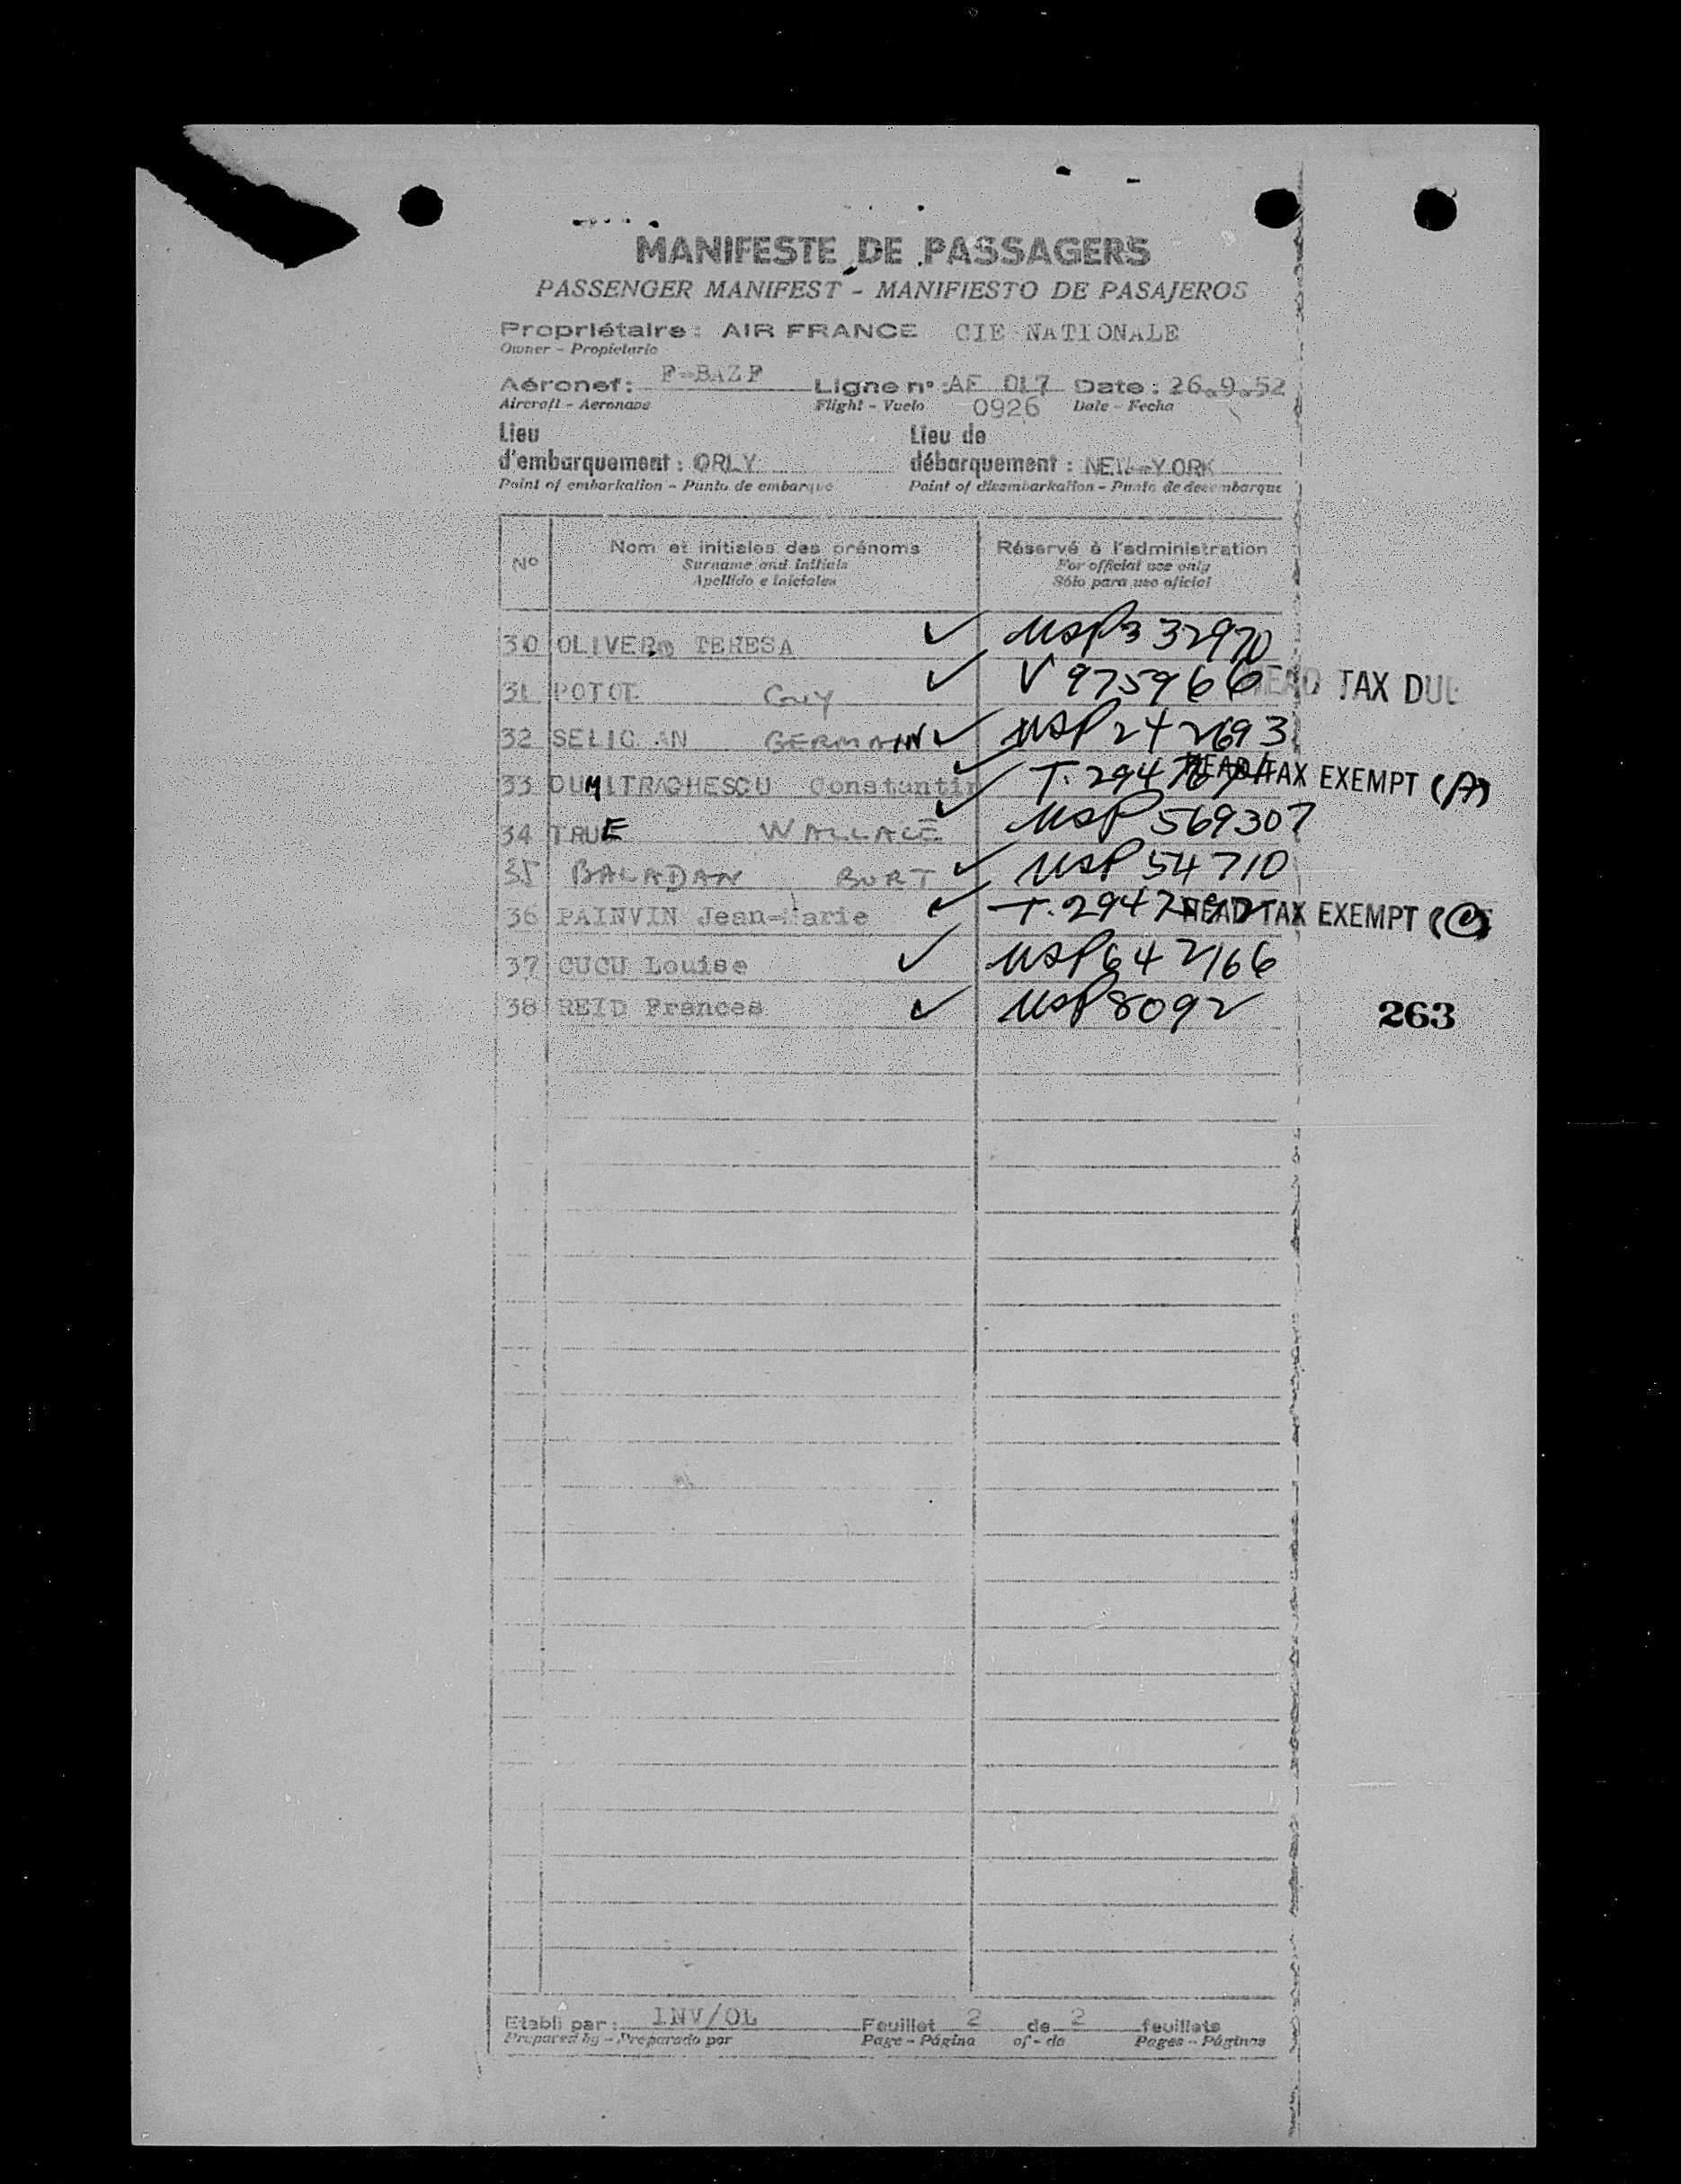 MANIFESTE DE PASSAGERS
PASSENGER MANIFEST - MANIFIESTO DE PASAJEROS
Propriétaire : AIR FRANCE CIE NATIONALE
Owner - Propietario
Aéronef : F-BAZF Ligne n° : AF 017 Date : 26.9.52
Aircraft - Aeronave Flight - Vuelo 0926 Date - Fecha
Lieu d'embarquement : ORLY Lieu de débarquement : NEW-YORK
Point of embarkation - Punto de embarque Point of disembarkation - Punto de desembarque
N° Nom et initiales des prénoms Réservé à l'administration
Surname and initials For official use only
Apellido e iniciales Sólo para uso oficial
30 OLIVERO TERESA ✓ USP332970
31 POTOT GUY ✓ V 975966 HEAD TAX DUE
32 SELIG AN GERMAIN ✓ USP 242693
33 DUMITRAGHESCU Constantin ✓ T. 294 HEAD TAX EXEMPT (A)
34 TRUE WALLACE ✓ USP 569307
35 BALADAN BURT ✓ USP 54710
36 PAINVIN Jean-Marie ✓ T. 2947 HEAD TAX EXEMPT (C)
37 CUCU Louise ✓ USP642166
38 REID Frances ✓ USP8092
263
Etabli par : INV/OL Feuillet 2 de 2 feuillets
Prepared by - Preparado por Page - Página of - de Pages - Páginas